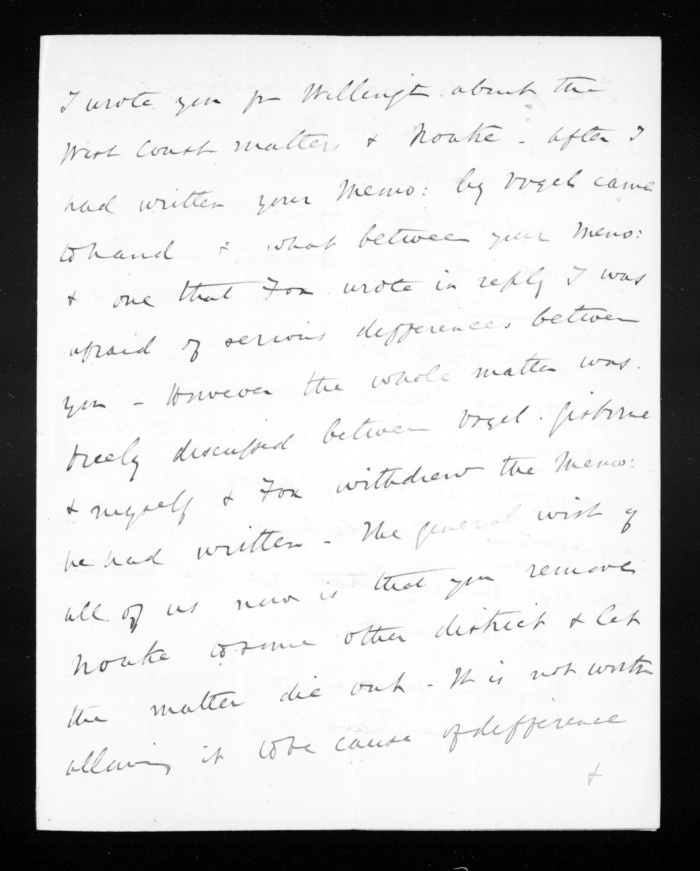 I wrote you fm Wellingt. about the
West Coast matters & Noake - after I
had written your Memo: by Vogel came
to hand & what between your Memo:
& one that Fox wrote in reply I was
afraid of serious differences between
you - However the whole matter was
freely discussed between Vogel. Gisborne
& myself & Fox withdrew the Memo:
he had written - The general wish of
all of us now is that you remove
Noake to some other district & let
the matter die out - It is not worth
allowing it to be cause of difference
&